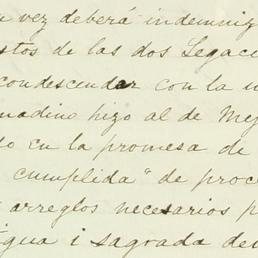 vez deberá indemniz
stos de las dos Legac
condescender con la
nadino hizo al de Mej
do en la promesa de
cumplida" de proc
arreglos necesarios p
igua i sagrada de